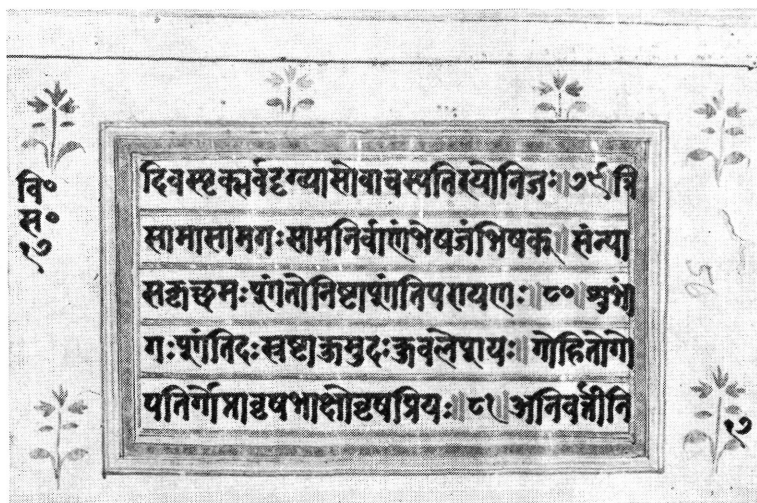 वि॰
स॰
१७
दिवस्पृक्सर्वदृग्व्यासोवाचस्पतिरयोनिजः॥७९॥त्रि
सामासामगःसामनिर्वाणंभेषजंभिषक्॥संन्या
सकृच्छमःशांतोनिष्टाशांतिपरायणः॥८०॥शुभां
गःशांतिदःस्रष्टाकुमुदःकुवलेशयः॥गोहितोगो
पतिर्गोप्तावृषभाक्षोवृषप्रियः॥८१॥अनिवर्त्तीनि
56
१७